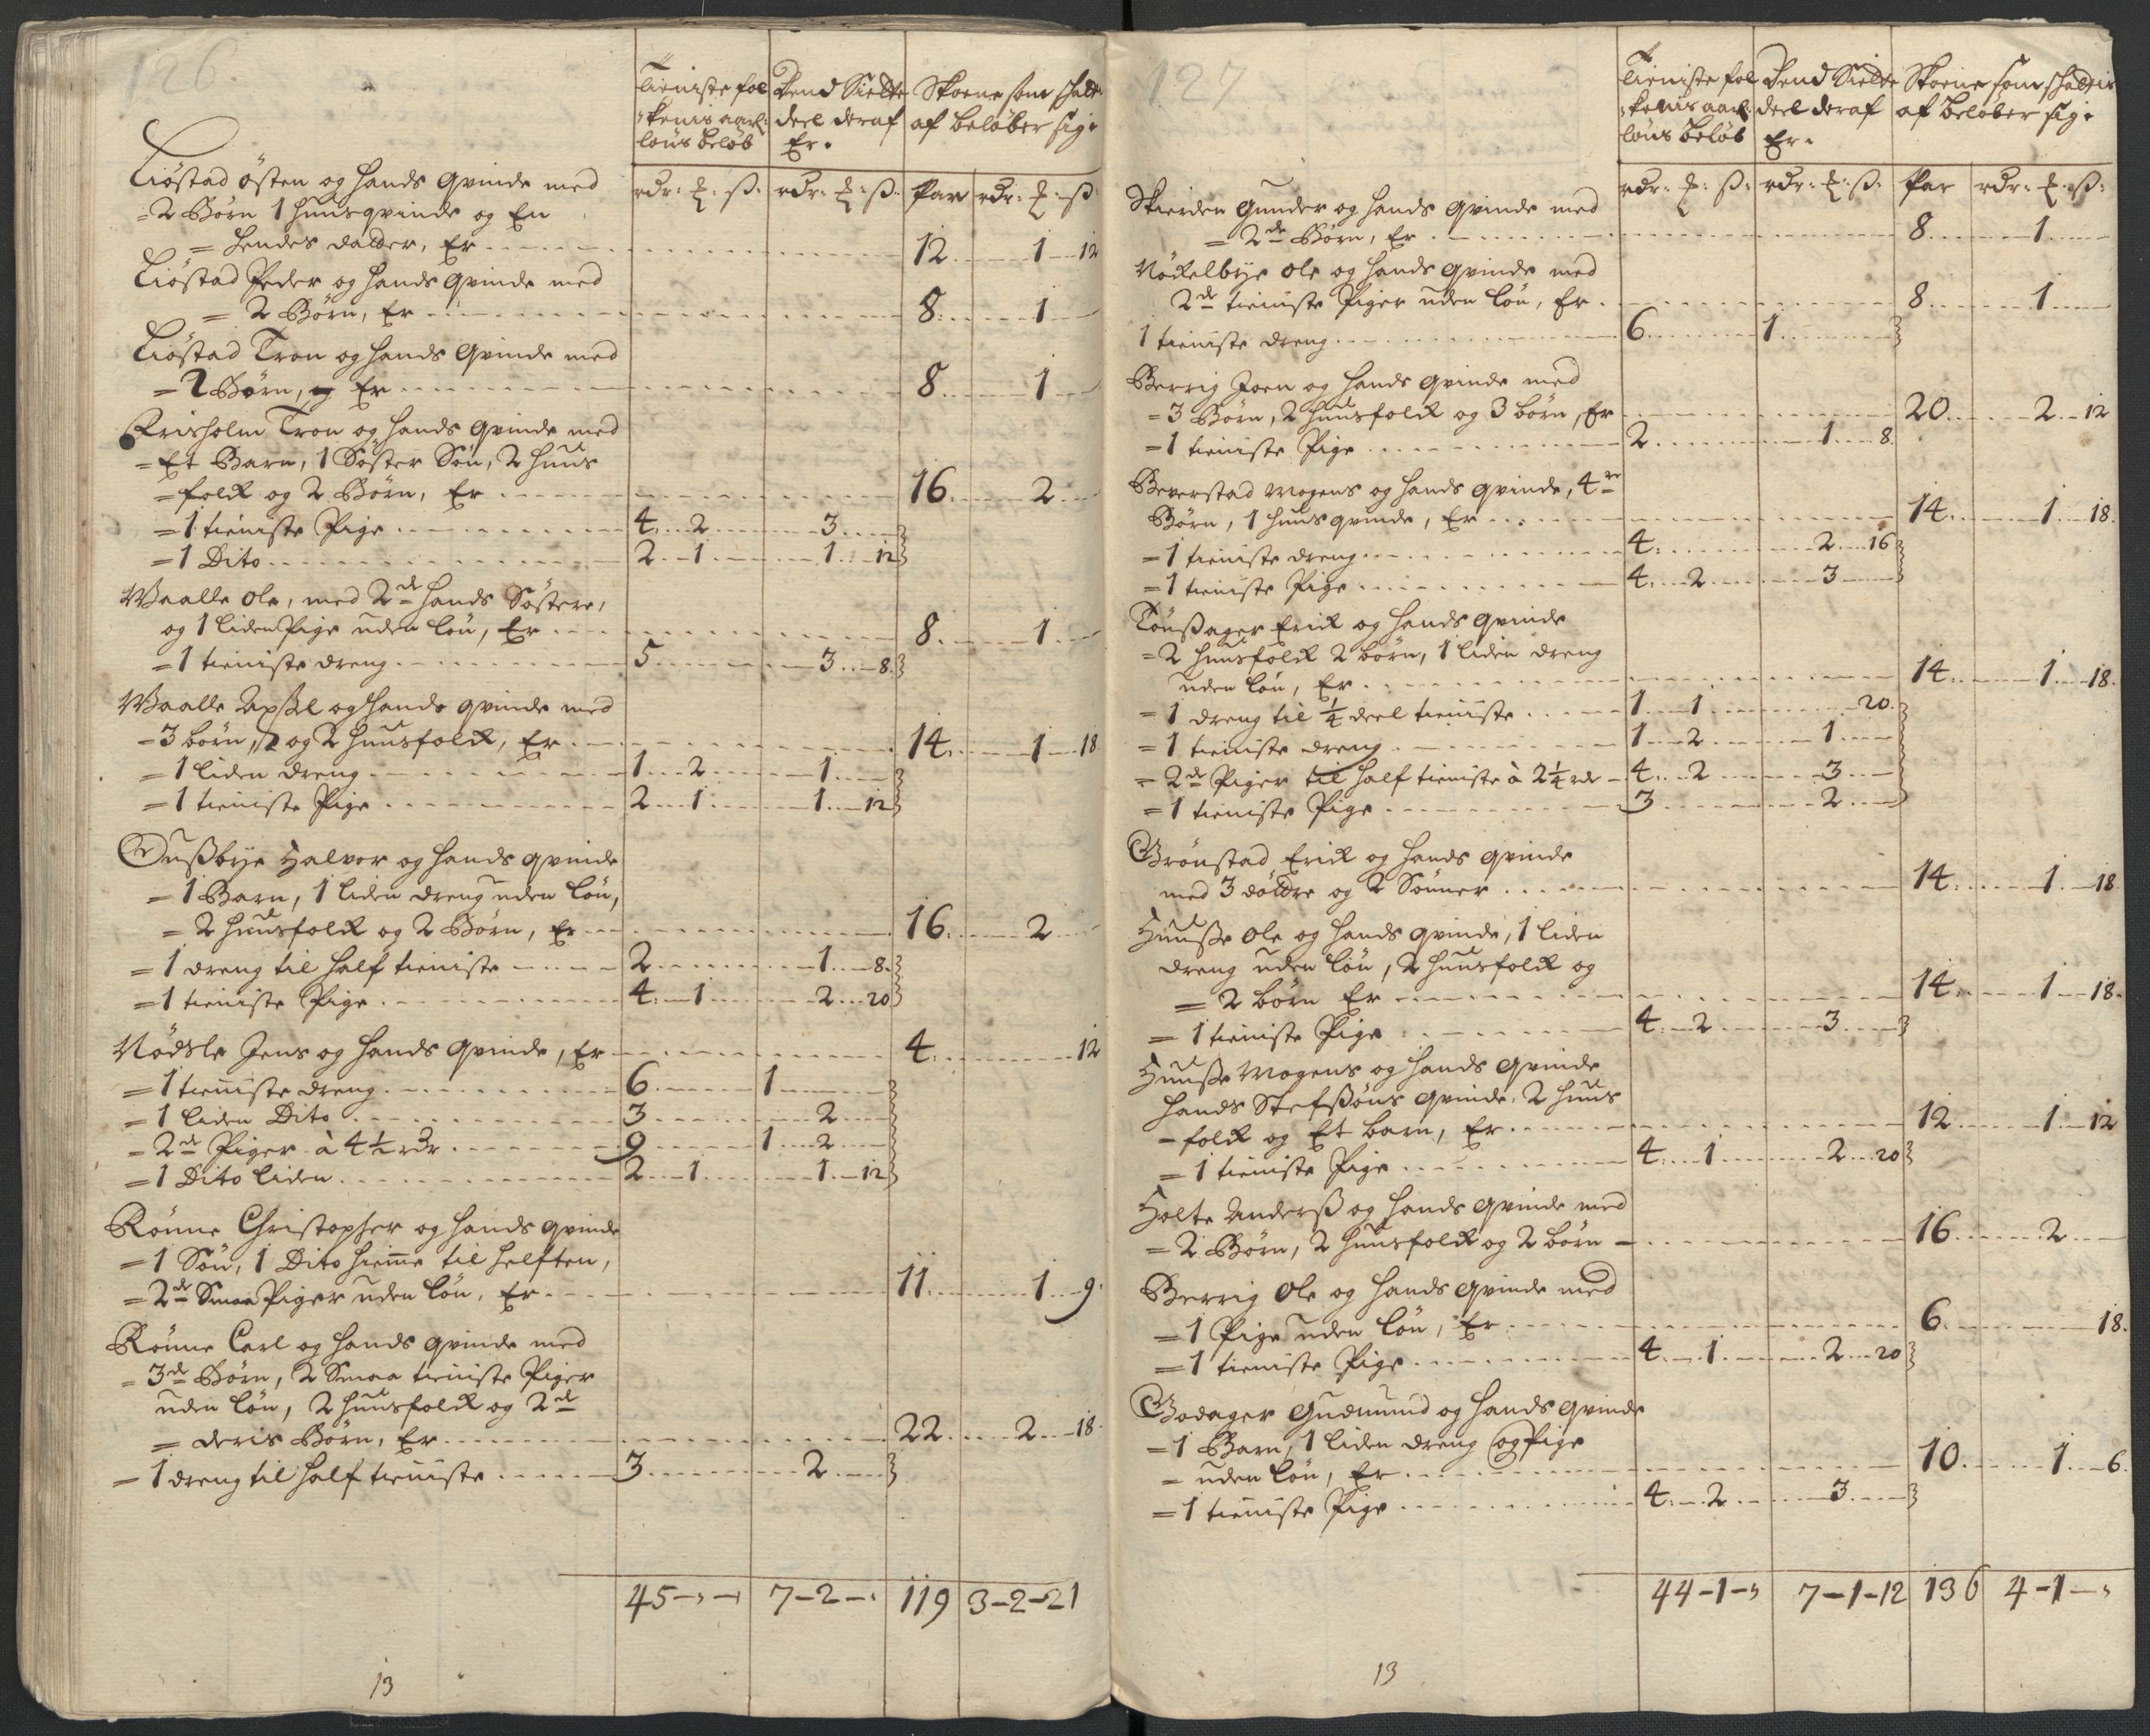 126.
Tieniste fol
kenis aarl:
löns beløb
Bend Siette
deel deraf
Er.
Skoene som schatt
af beløber sig:
rdr: ꝣ: ß: rdr: ꝣ: ß: Par rdr: ꝣ: ß:
Liöstad östen og hands qvinde med
= 2 Börn 1 huusqvinde og En
= hendes datter, Er 12 1 12
Liöstad Peder og hands qvinde med
= 2 Börn, Er 8 1
Liöstad Tron og hands Qvinde med
= 2 Börn, Er 8 1
Frisholm Tron og hands qvinde med
= Et Barn, 1 Söster Sön, 2 huus
= folck og 2 Börn, Er 16 2
= 1 tieniste Pige 4 2 3
= 1 Dito 2 1 1 12
Waalle Ole, med 2de hands Söstere,
og 1 liden Pige uden lön, Er 8 1
= 1 tieniste dreng 5 3 8
Waalle Axßel og hands qvinde med
= 3 börn, og 2 huusfolck, Er 14 1 18
= 1 liden dreng 1 2 1
= 1 tieniste Pige 2 1 1 12
Dußbye Halvor og hands qvinde
= 1 Barn, 1 liden dreng uden lön,
= 2 huusfolck og 2 Börn, Er 16 2
= 1 dreng til half tieniste 2 1 8
= 1 tieniste Pige 4 1 2 20
Nödsle Jens og hands Qvinde, Er 4 12
= 1 tieniste dreng 6 1
= 1 liden Dito 3 2
= 2de Piger à 4½ rdr 9 1 2
= 1 Dito liden 2 1 1 12
Rönne Christopher og hands qvinde
= 1 Sön, 1 Dito hieme til helften,
= 2de Smaa Piger uden lön, Er 11 1 9
Rönne Carl og hands qvinde med
= 3de Börn, 2 Smaa tieniste Piger
uden lön, 2 huusfolck og 2de
= deris Börn, Er 22 2 18
= 1 dreng til half tieniste 3 2
45 - - 7 - 2 - 119 3 - 2 - 21
13
127
Tieniste fol
kenis aarl:
löns beløb
Bend Siette
deel deraf
Er.
Skoene som schattis
af beløber sig:
rdr: ꝣ: ß: rdr: ꝣ: ß: Par rdr: ꝣ: ß:
Skierden Gunder og hands qvinde med
= 2de Börn, Er 8 1
Nöckelbye Ole og hands qvinde med
2de tieniste Piger uden lön, Er 8 1
1 tieniste dreng 6 1
Berrig Joen og hands qvinde med
= 3 Börn, 2 huusfolck og 3 börn, Er 20 2 12
= 1 tieniste Pige 2 1 8
Beverstad Mogens og hands qvinde, 4re
Börn, 1 huusqvinde, Er 14 1 18
= 1 tieniste dreng 4 2 16
= 1 tieniste Pige 4 2 3
Tönßager Erick og hands qvinde
= 2 huusfolck 2 börn, 1 liden dreng
uden lön, Er 14 1 18
= 1 dreng til ¼ deel tieniste 1 1 20
= 1 tieniste dreng 1 2 1
= 2de Piger til half tieniste à 2¼ rdr 4 2 3
= 1 tieniste Pige 3 2
Grönstad Erick og hands qvinde
med 3 döttre og 2 Sönner 14 1 18
Huuße Ole og hands qvinde, 1 liden
dreng uden lön, 2 huusfolck og
= 2 börn Er 14 1 18
= 1 tieniste Pige 4 2 3
Huuße Mogens og hands qvinde
hands Stefßöns qvinde, 2 huus
= folck og Et barn, Er 12 1 12
= 1 tieniste Pige 4 1 2 20
Holte Anderß og hands qvinde med
= 2 Börn, 2 huusfolck og 2 börn 16 2
Berrig Ole og hands qvinde med
= 1 Pige uden lön, Er 6 18
= 1 tieniste Pige 4 1 2 20
Godager Gudmund og hands qvinde
= 1 Barn, 1 liden dreng og Pige
= uden lön, Er 10 1 6
= 1 tieniste Pige 4 2 3
44 - 1 - 7 - 1 - 12 136 4 - 1 -
13